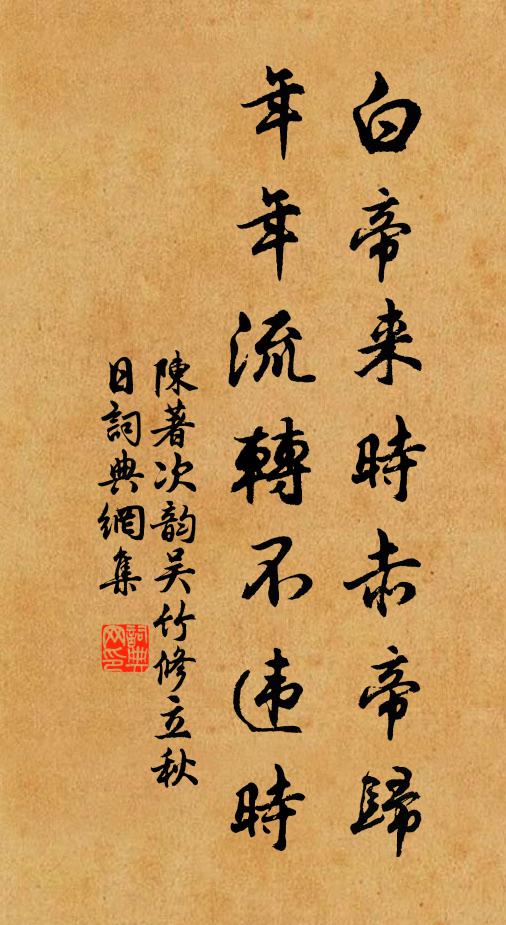 白帝来時赤帝歸
年年流轉不违時
陳著次韵吴竹修立秋
日詞典網集
詞典网印